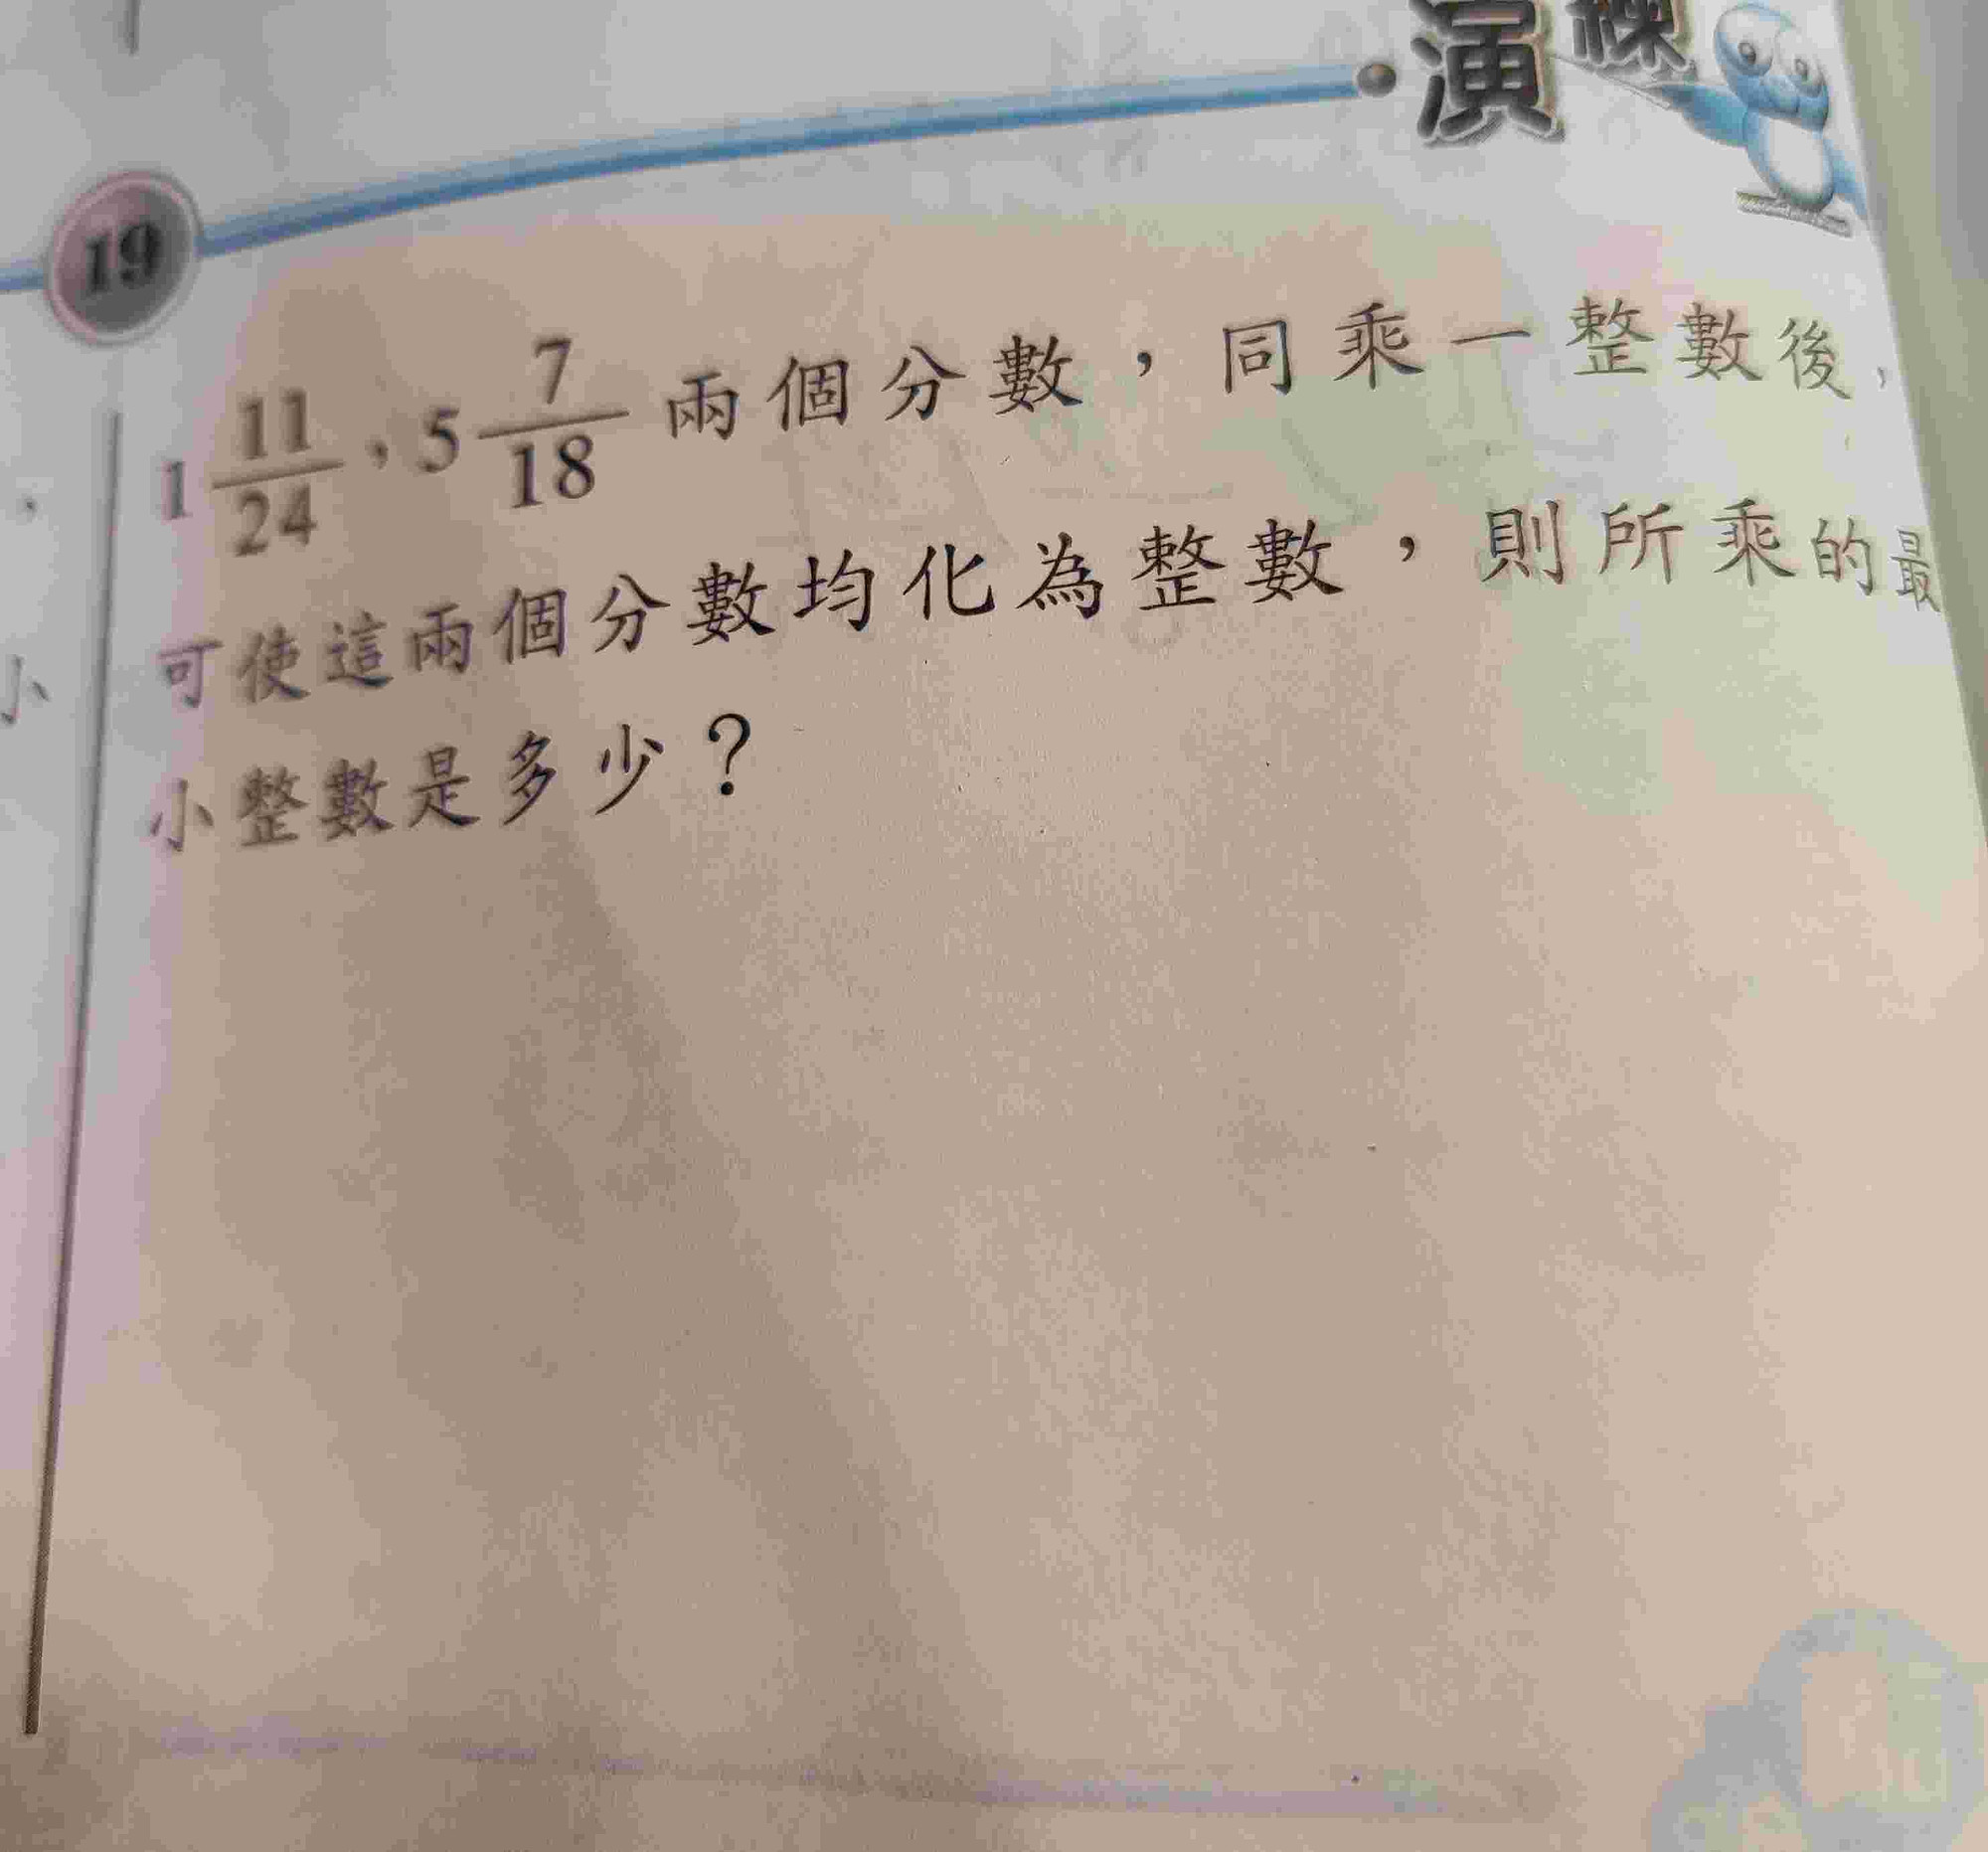 演練
19
1 11/24，5 7/18 兩個分數，同乘一整數後，
可使這兩個分數均化為整數，則所乘的最
小整數是多少？
，
小